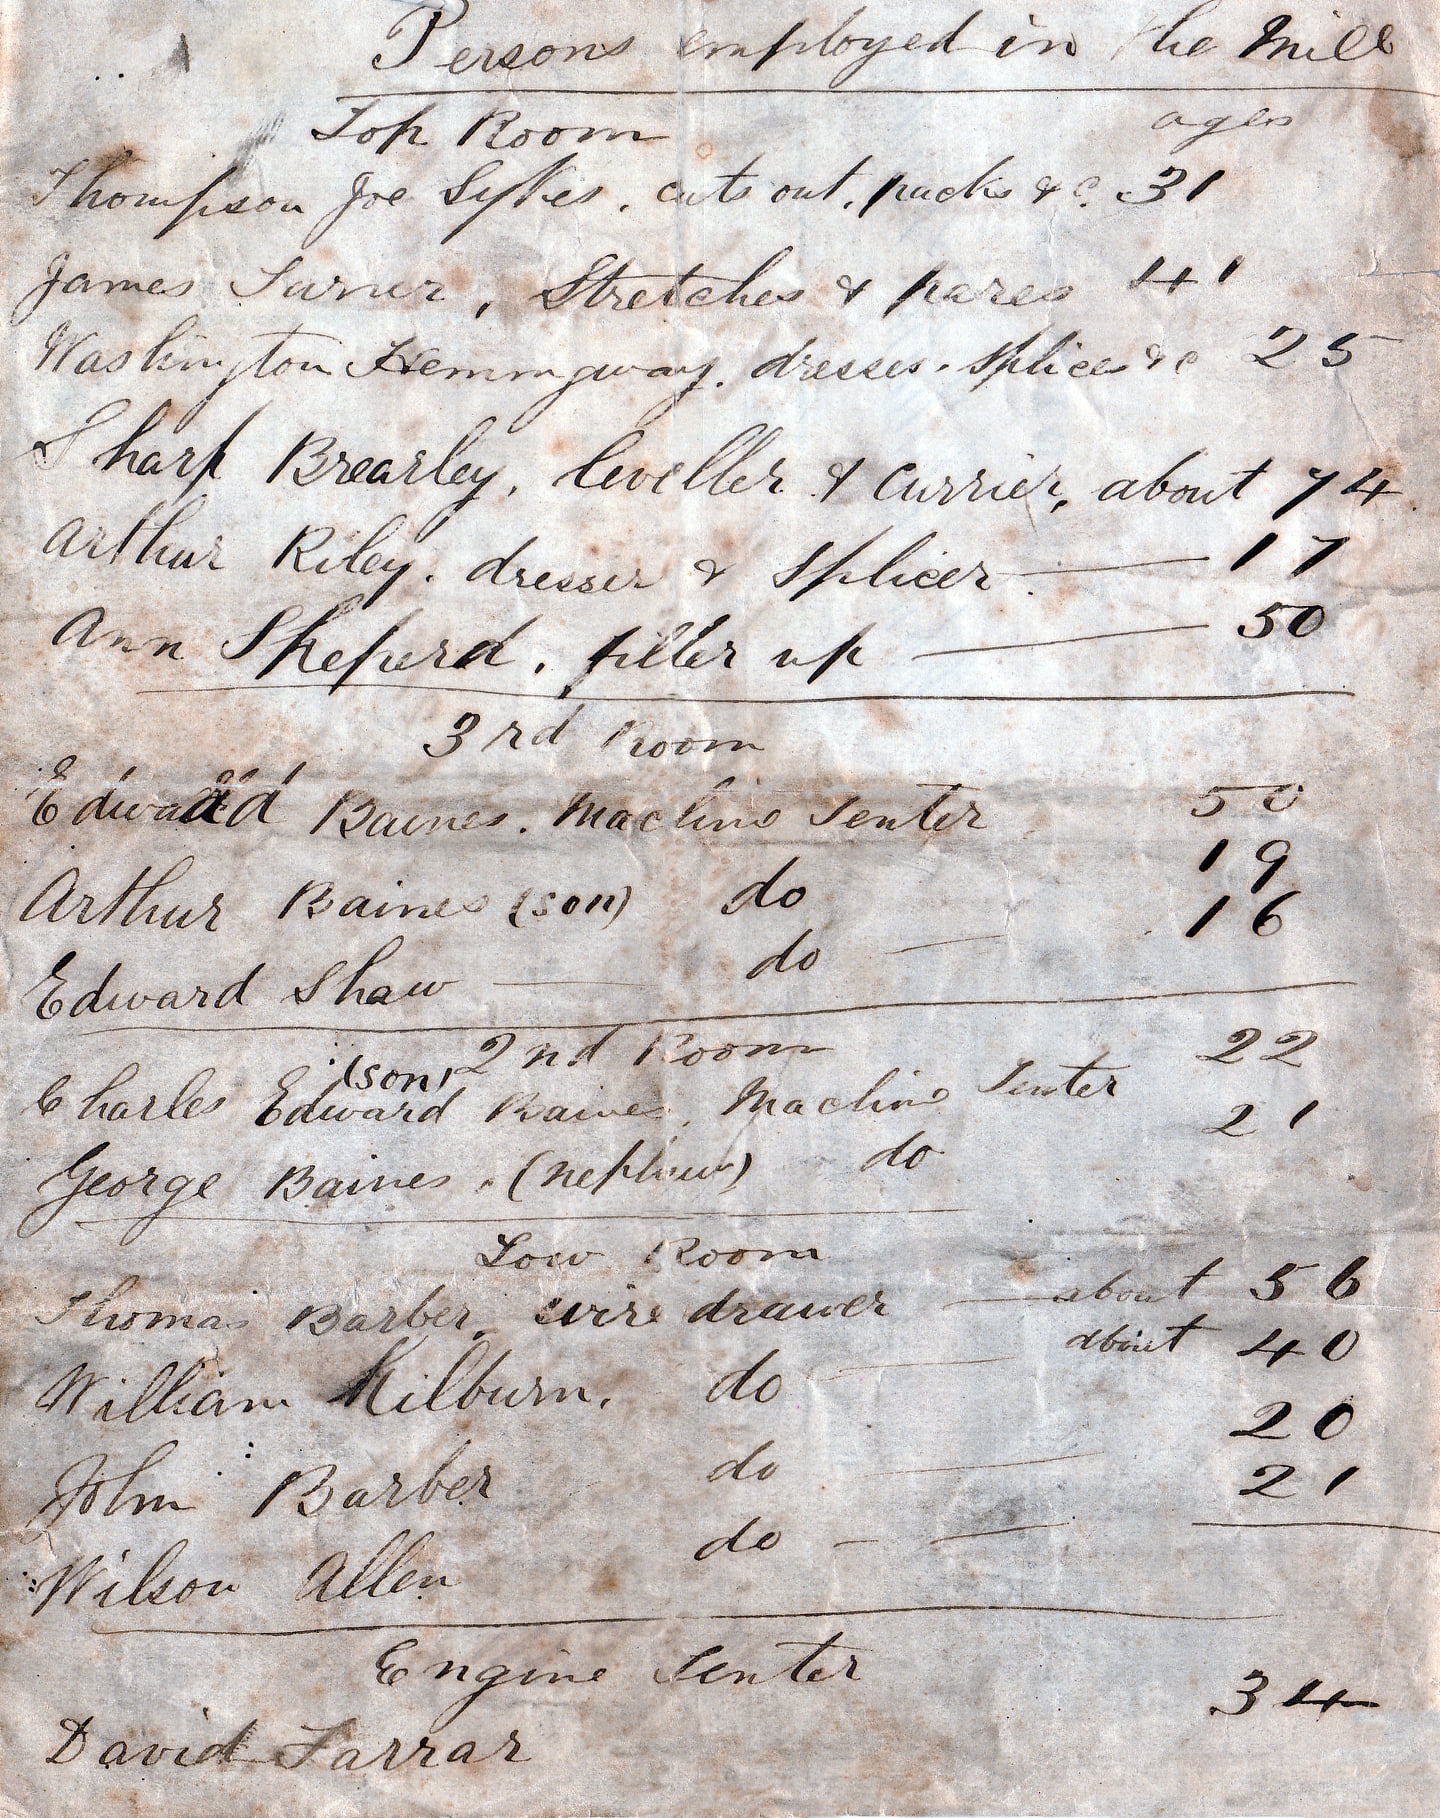 Persons employed in the Mill
Top Room ages
Thompson Joe Sykes. cuts out, packs &c. 31
James Turner, Stretches & pares 41
Washington Hemmingway. dresses. splices &c 25
Sharp Brearley, leveller & Currier, about 74
Arthur Riley. dresser & Splicer — 17
Ann Sheperd. filler up — 50
3rd Room
Edward Baines. Machine Tenter 50
Arthur Baines (son) do 19
Edward Shaw — do — 16
2nd Room
(son)
Charles Edward Baines, Machine Tenter 22
George Baines. (nephew) do 21
Low Room
Thomas Barber, wire drawer — about 56
William Kilburn. do — about 40
John Barber do — 20
Wilson Allen do — 21
Engine Tenter
David Farrar 34